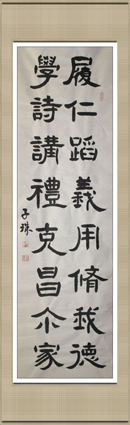 履仁蹈義用脩我德
學詩講禮克昌尒家
子珠